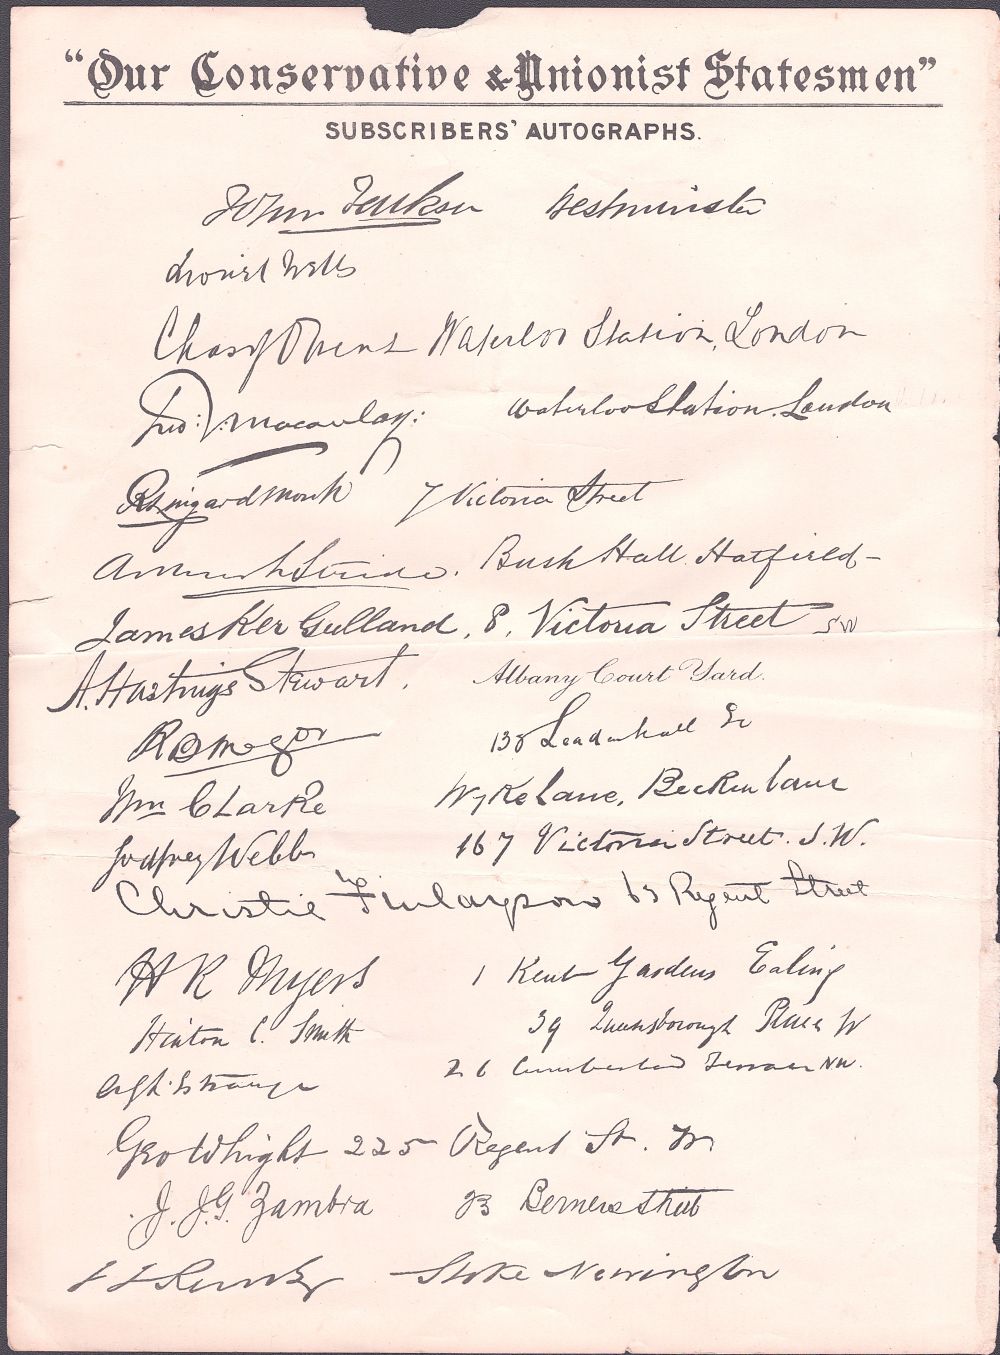 "Our Conservative & Unionist Statesmen"
SUBSCRIBERS' AUTOGRAPHS.
John Jackson Westminster
Lionel Wells
Chas J Owens Waterloo Station, London
Fred: J. Macaulay: Waterloo Station. London
R Lingard Monk 7 Victoria Street
Bush Hall Hatfield
James Ker Gulland, 8, Victoria Street SW
A. Hastings Stewart. Albany Court Yard.
138 Leadenhall St EC
Wm Clarke Wyke Lane, Beckenham
Godfrey Webb 167 Victoria Street. S.W.
Christie Finlayson 63 Regent Street
H R Myers 1 Kent Gardens Ealing
Hinton C. Smith 39 Queensborough Place W
26 Cumberland Terrace NW.
Geo Whight 225 Regent St. W
J. J. G. Zambra 23 Berners Street
Stoke Newington